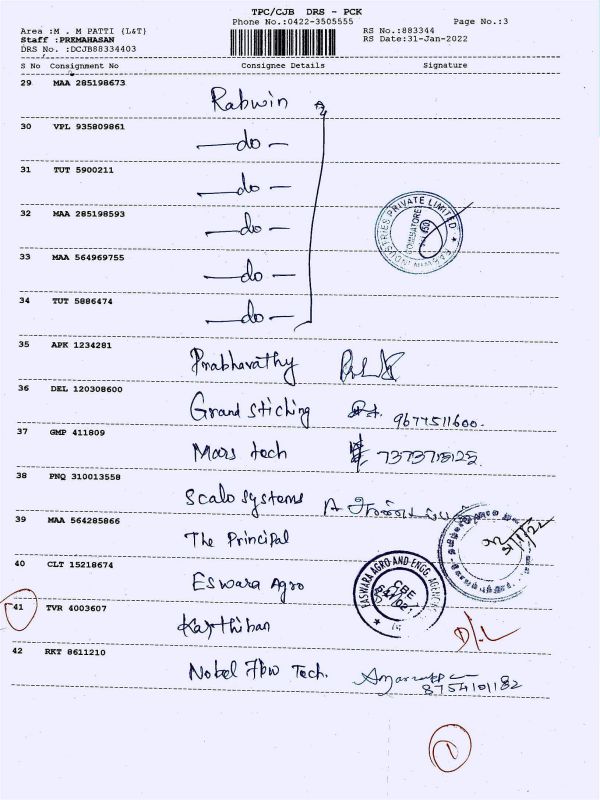 TPC/CJB DRS - PCK
Phone No.:0422-3505555 Page No.:3
Area :M . M PATTI {L&T} RS No.:883344
Staff :PREMAHASAN RS Date:31-Jan-2022
DRS No. :DCJB88334403
S No Consignment No Consignee Details Signature
29 MAA 285198673 Rabwin
30 VPL 935809861 —do—
31 TUT 5900211 —do—
32 MAA 285198593 —do—
INDUSTRIES PRIVATE LIMITED
COIMBATORE
33 MAA 564969755 —do—
34 TUT 5886474 —do—
35 APK 1234281 Prabhavathy
36 DEL 120308600 Grand Sticking 9677511600.
37 GMP 411809 Mars tech
38 PNQ 310013558 Scalo Systems
39 MAA 564285866 The Principal
40 CLT 15218674 Eswara Agro
EASWARA AGRO AND ENGG. AGENCIES
CBE
41 TVR 4003607 Karthiban
D/L
42 RKT 8611210 Nobel Tech.
8754101182